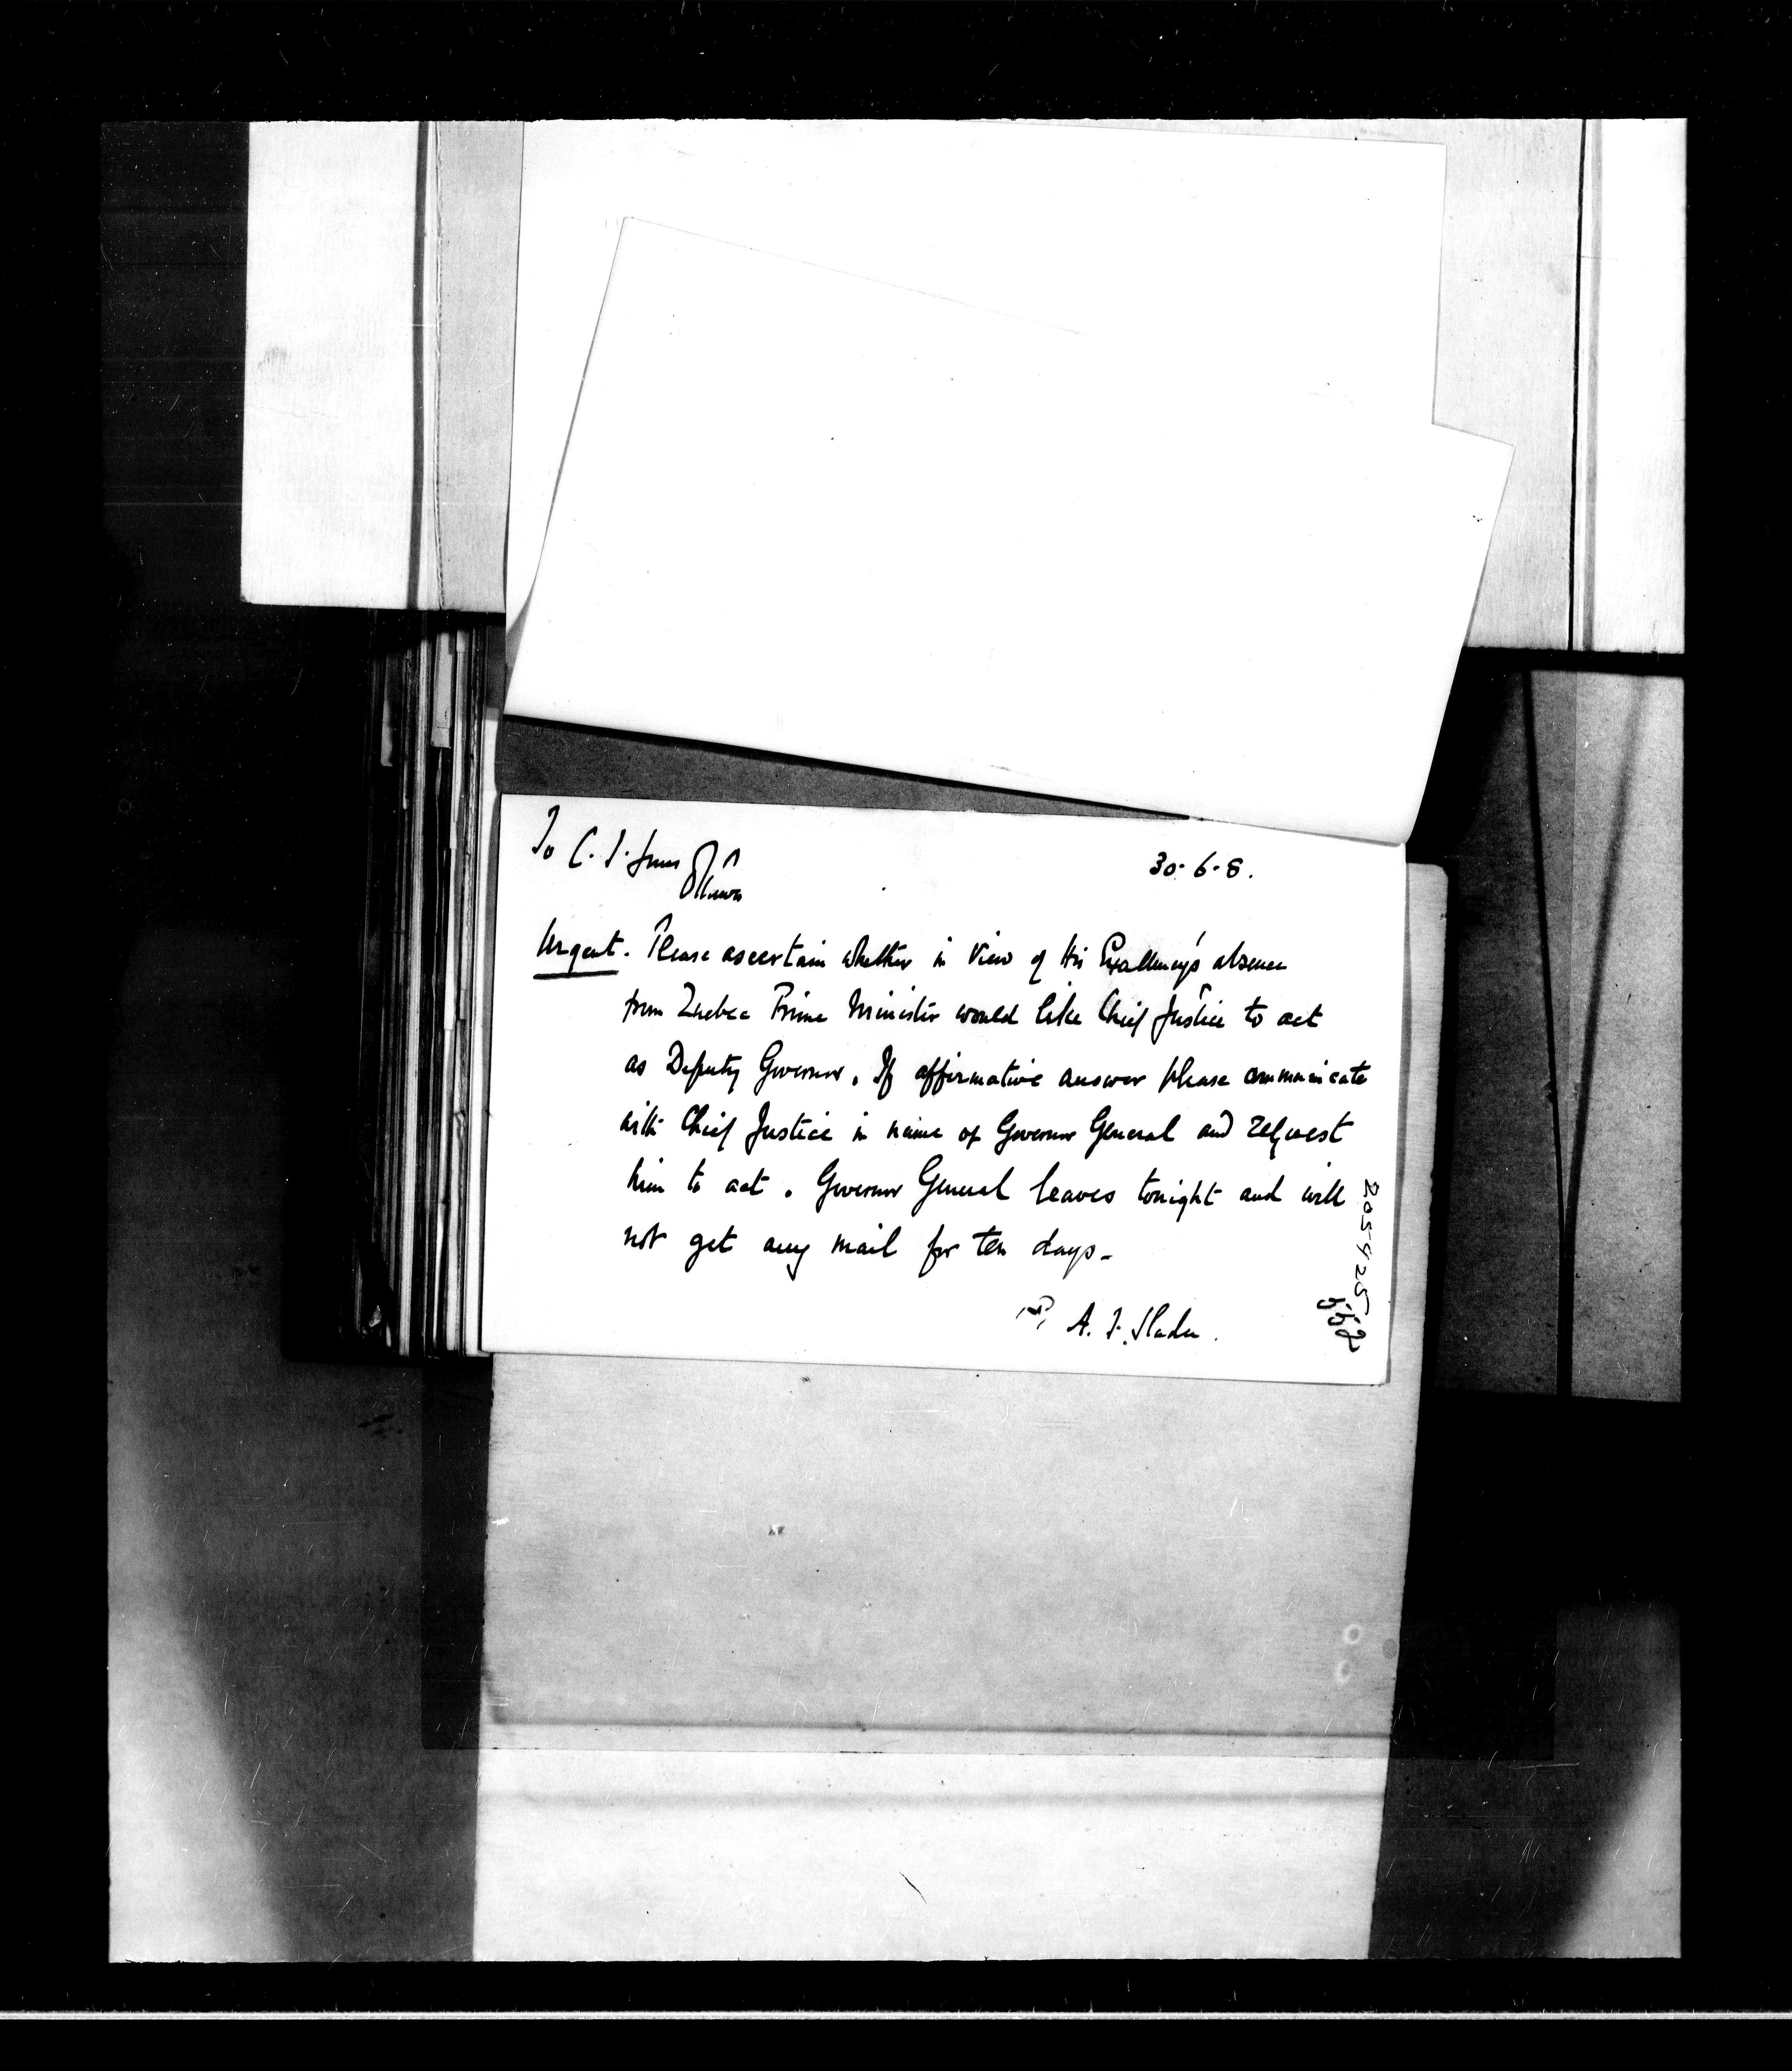 To C. J. Jones
Ottawa
30-6-8.
Urgent. Please ascertain whether in view of His Excellency's absence
from Quebec Prime Minister would like Chief Justice to act
as Deputy Governor. If affirmative answer please communicate
with Chief Justice in name of Governor General and request
him to act. Governor General leaves tonight and will
not get any mail for ten days-
A. F. Sladen.
205425